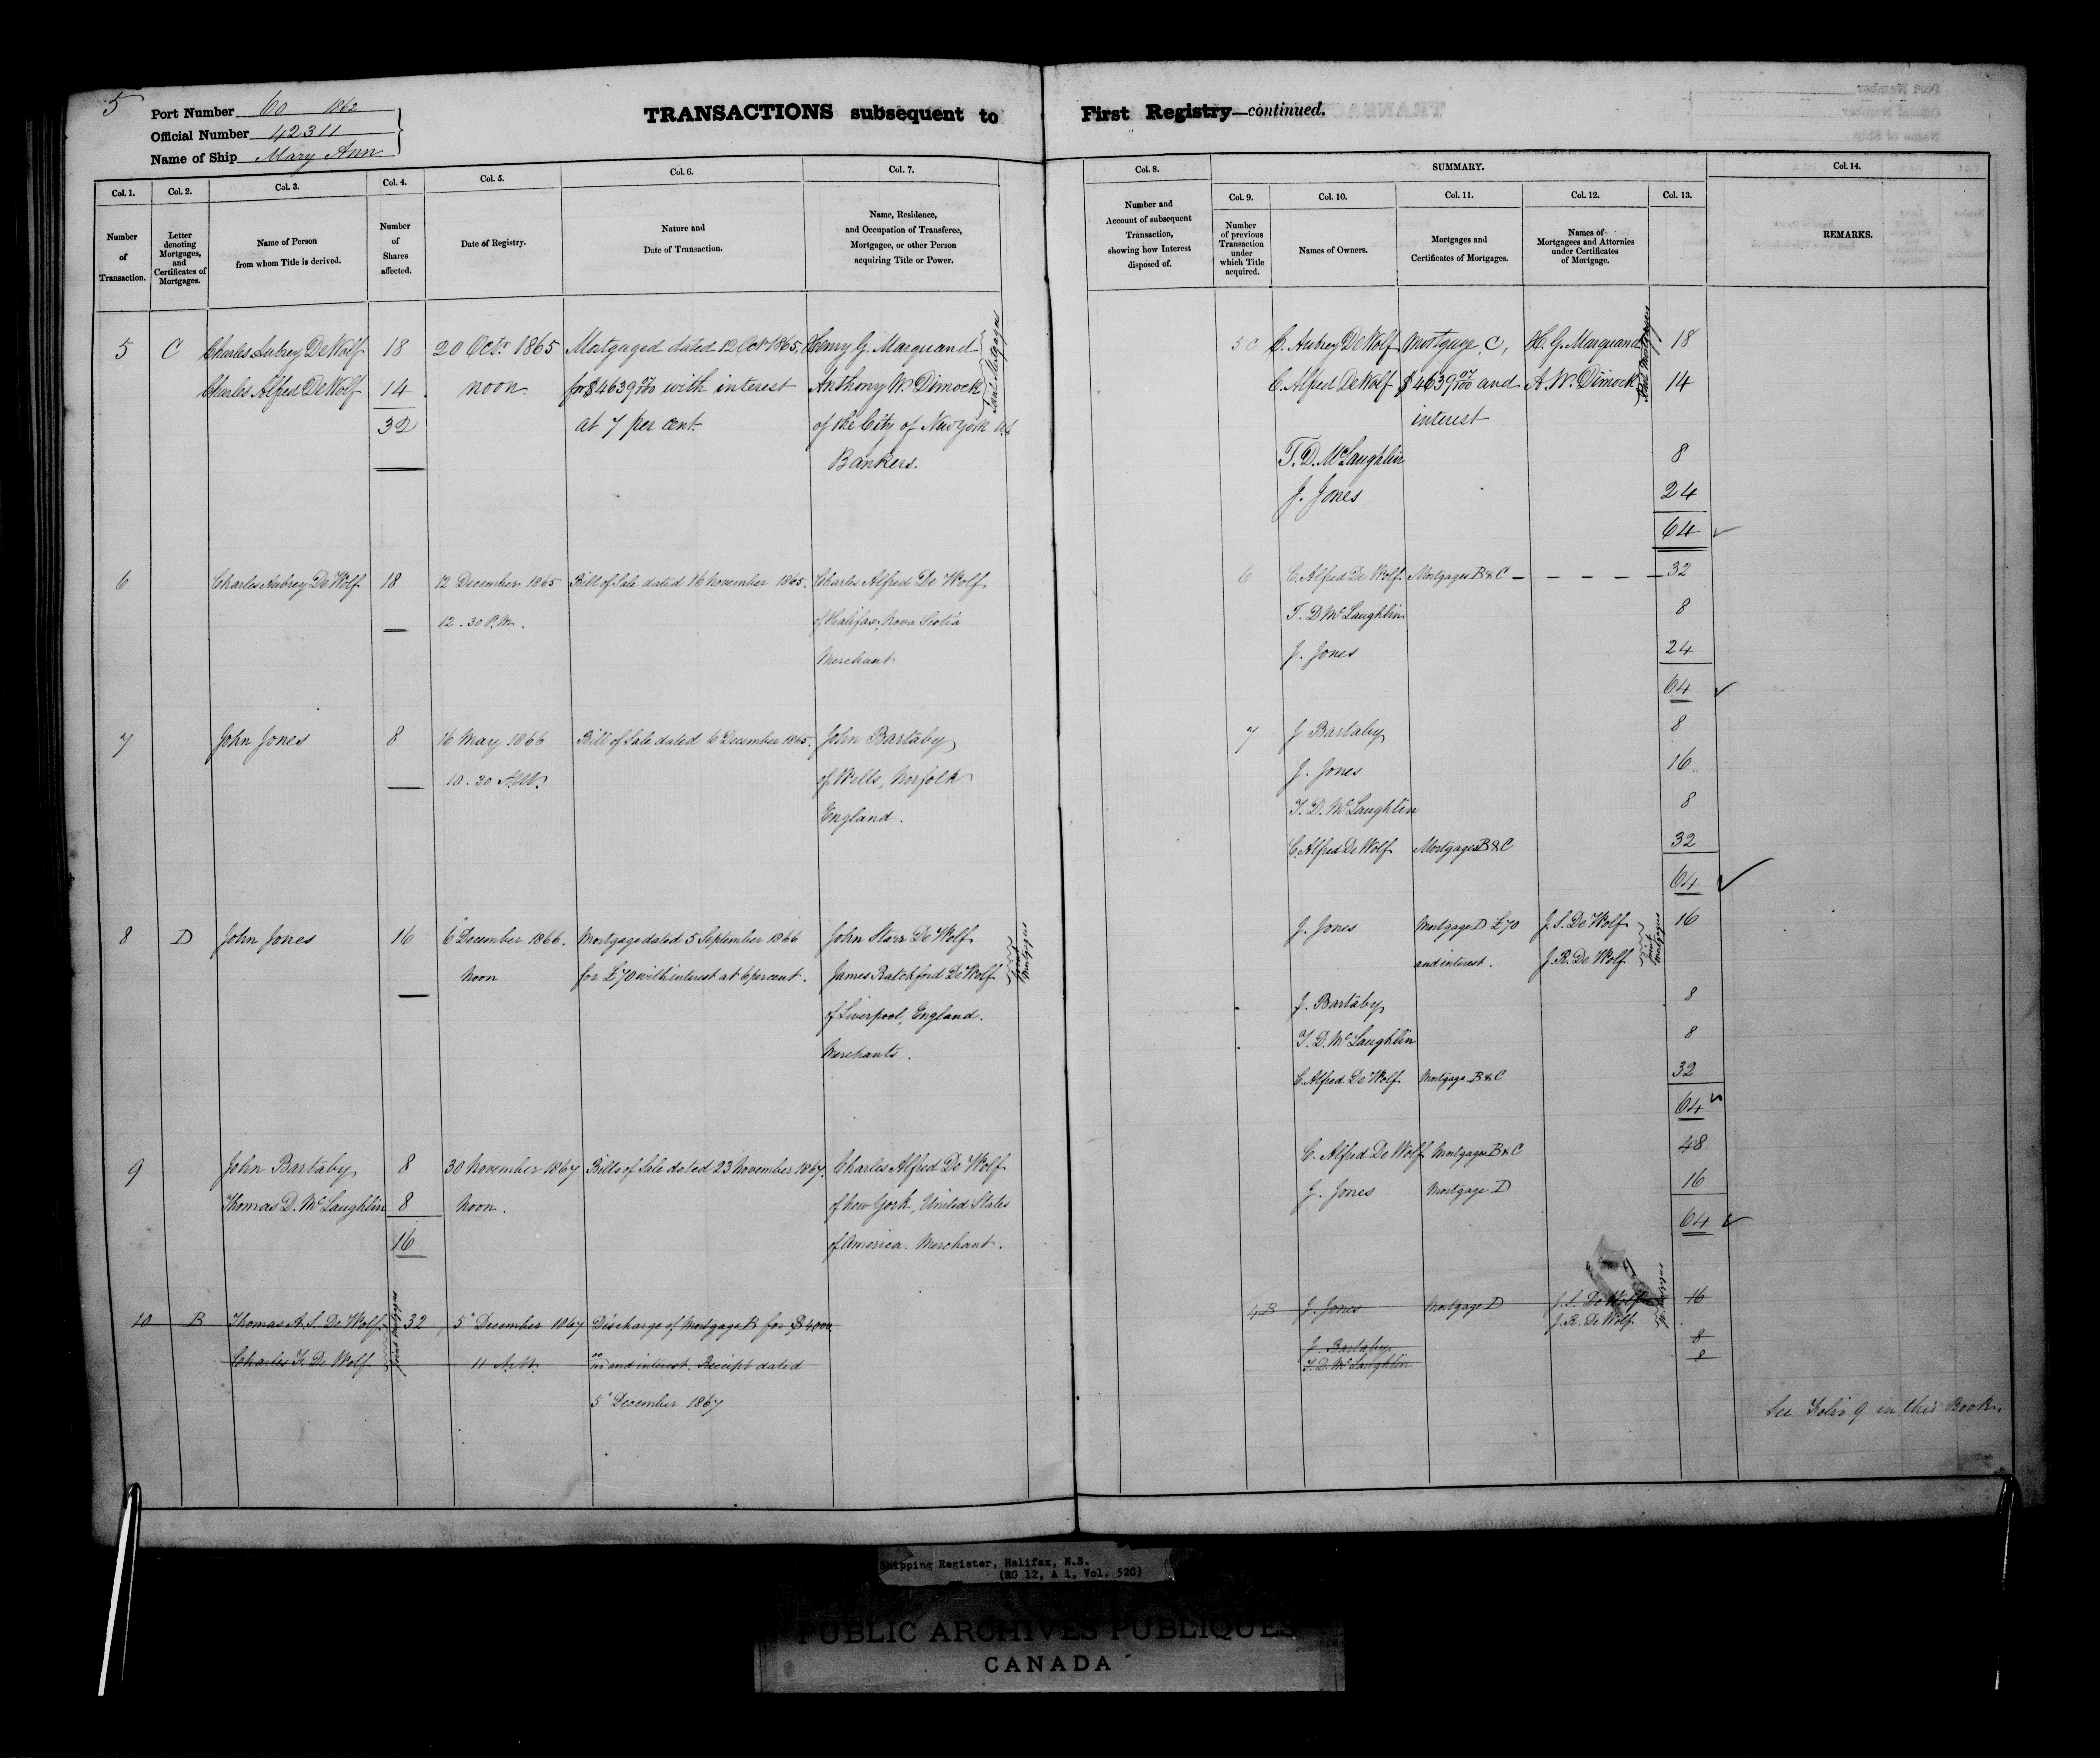 5
Port Number 60 1862
Official Number 42311
Name of Ship Mary Ann
TRANSACTIONS subsequent to First Registry—continued.
Col. 1. Col. 2. Col. 3. Col. 4. Col. 5. Col. 6. Col. 7. Col. 8. SUMMARY. Col. 14.
Col. 9. Col. 10. Col. 11. Col. 12. Col. 13.
Number of Transaction.
Letter denoting Mortgages, and Certificates of Mortgages.
Name of Person from whom Title is derived.
Number of Shares affected.
Date of Registry.
Nature and Date of Transaction.
Name, Residence, and Occupation of Transferee, Mortgagee, or other Person acquiring Title or Power.
Number and Account of subsequent Transaction, showing how Interest disposed of.
Number of previous Transaction under which Title acquired.
Names of Owners.
Mortgages and Certificates of Mortgages.
Names of Mortgagees and Attornies under Certificates of Mortgage.
REMARKS.
5 C Charles Aubrey DeWolf 18 20 Octr 1865 Mortgaged dated 12 Oct 1865, Henry G. Marquand
Charles Alfred DeWolf 14 noon for $4639 07/100 with interest Anthony W. Dimock
Joint Mortgages
32 at 7 per cent. of the City of New York U.S.
Bankers.
5 C C. Aubrey DeWolf Mortgage, C, H. G. Marquand 18
C. Alfred DeWolf $4639 07/100 and A. W. Dimock 14
Joint Mortgages
interest
T. D. McLaughlin 8
J. Jones 24
64
6 Charles Aubrey De Wolf 18 12 December 1865 Bill of Sale dated 16 November 1865. Charles Alfred De Wolf
12.30 P.M. of Halifax, Nova Scotia
Merchant
6 C. Alfred De Wolf Mortgages B & C - - - - - 32
T. D McLaughlin 8
J. Jones 24
64
7 John Jones 8 16 May 1866 Bill of Sale dated 6 December 1865. John Bartaby
10.30 A.M. of Wells, Norfolk
England.
7 J Bartaby 8
J. Jones 16
T. D. McLaughlin 8
C. Alfred De Wolf Mortgages B & C 32
64
8 D John Jones 16 6 December 1866. Mortgage dated 5 September 1866 John Starr De Wolf
Noon for £70 with interest at 6 per cent. James Ratchford De Wolf
Joint Mortgages
of Liverpool, England.
Merchants.
J. Jones Mortgage D £70 J. S. De Wolf 16
and interest. J. R. De Wolf
Joint Mortgages
J. Bartaby 8
T. D. McLaughlin 8
C. Alfred De Wolf Mortgage B & C 32
64
9 John Bartaby 8 30 November 1867 Bills of Sale dated 23 November 1867. Charles Alfred De Wolf
Thomas D. McLaughlin 8 Noon. of New York, United States
16 of America. Merchant.
C. Alfred De Wolf Mortgages B & C 48
J. Jones Mortgage D 16
64
10 B Thomas A. S. De Wolf 32 5" December 1867 Discharge of Mortgage B for $4000
Charles K. De Wolf 11 A.M. 00/100 and interest. Receipt dated
Joint Mortgages
5" December 1867
4 B J. Jones Mortgage D J. S. De Wolf 16
J. R. De Wolf
J. Bartaby 8
T. D. McLaughlin 8
See Folio 9 in this Book.
Shipping Register, Halifax, N.S.
(RG 12, A 1, Vol. 52C)
PUBLIC ARCHIVES PUBLIQUES
CANADA